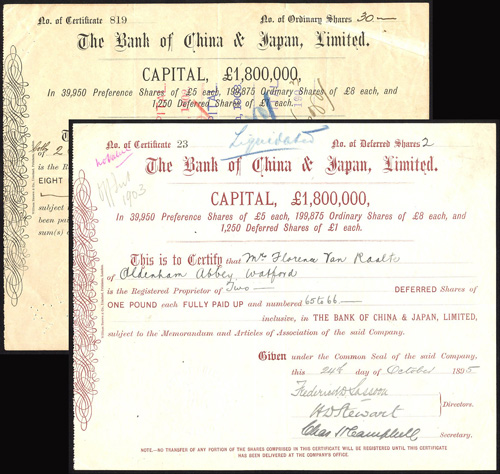 No. of Certificate 819 No. of Ordinary Shares 30
The Bank of China & Japan, Limited.
CAPITAL, £1,800,000,
In 39,950 Preference Shares of £5 each, 199,875 Ordinary Shares of £8 each, and
1,250 Deferred Shares of £1 each.
of 2
is the R
EIGHT
subject
been pai
sum(s) o
No. of Certificate 23 No. of Deferred Shares 2
Liquidated
The Bank of China & Japan, Limited.
1903
CAPITAL, £1,800,000,
In 39,950 Preference Shares of £5 each, 199,875 Ordinary Shares of £8 each, and
1,250 Deferred Shares of £1 each.
This is to Certify that Mrs Florence Van Raalte
of Aldenham Abbey Watford
is the Registered Proprietor of Two DEFERRED Shares of
ONE POUND each FULLY PAID UP and numbered 65 to 66
inclusive, in THE BANK OF CHINA & JAPAN, LIMITED,
subject to the Memorandum and Articles of Association of the said Company.
Given under the Common Seal of the said Company,
this 24th day of October 1895
Frederick D Sassoon
H D Stewart
Directors.
Chas H Campbell Secretary.
NOTE.—NO TRANSFER OF ANY PORTION OF THE SHARES COMPRISED IN THIS CERTIFICATE WILL BE REGISTERED UNTIL THIS CERTIFICATE
HAS BEEN DELIVERED AT THE COMPANY'S OFFICE.